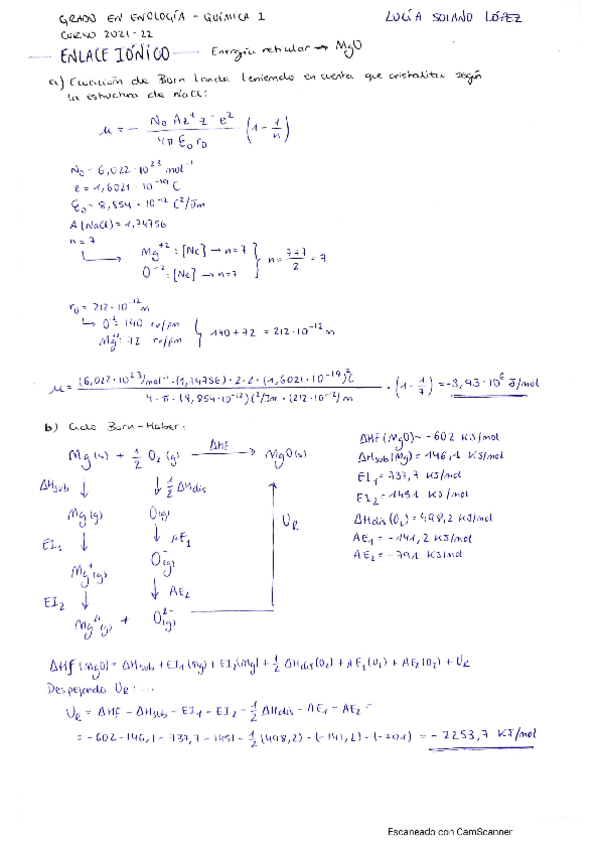 GRADO EN ENOLOGÍA - QUÍMICA I LUCÍA SOLANO LÓPEZ
CURSO 2021-22
ENLACE IÓNICO Energía reticular → MgO
a) Ecuación de Born Landé teniendo en cuenta que cristaliza según
la estructura de NaCl:
u = - N₀ A z⁺ z⁻ e² / 4π ε₀ r₀ (1 - 1/n)
N₀ = 6,022 · 10²³ mol⁻¹
e = 1,6021 · 10⁻¹⁹ C
ε₀ = 8,854 · 10⁻¹² C²/Jm
A (NaCl) = 1,74756
n = 7
Mg⁺² : [Ne] → n = 7
O⁻² : [Ne] → n = 7 } n = 7+7/2 = 7
r₀ = 212 · 10⁻¹² m
O²⁻: 140 rv/pm
Mg²⁺: 72 rv/pm } 140 + 72 = 212 · 10⁻¹² m
u = (6,022 · 10²³) mol⁻¹ · (1,74756) · 2 · 2 · (1,6021 · 10⁻¹⁹)² C / 4 · π · (8,854 · 10⁻¹²) C²/Jm · (212 · 10⁻¹²) m · (1 - 1/7) = -3,93 · 10⁶ J/mol
b) Ciclo Born-Haber:
Mg (s) + 1/2 O₂ (g) ΔHf → MgO (s)
ΔHsub ↓ ↓ 1/2 ΔHdis
Mg (g) O(g)
EI₁ ↓ ↓ AE₁ UR
Mg⁺(g) O⁻(g)
EI₂ ↓ ↓ AE₂
Mg²⁺(g) + O²⁻(g)
ΔHf (MgO) = -602 KJ/mol
ΔHsub (Mg) = 146,1 KJ/mol
EI₁ = 737,7 KJ/mol
EI₂ = 1451 KJ/mol
ΔHdis (O₂) = 498,2 KJ/mol
AE₁ = -141,2 KJ/mol
AE₂ = -791 KJ/mol
ΔHf (MgO) = ΔHsub + EI₁ (Mg) + EI₂ (Mg) + 1/2 ΔHdis (O₂) + AE₁ (O₂) + AE₂ (O₂) + UR
Despejando UR: ...
UR = ΔHf - ΔHsub - EI₁ - EI₂ - 1/2 ΔHdis - AE₁ - AE₂ =
= -602 - 146,1 - 737,7 - 1451 - 1/2 (498,2) - (-141,2) - (-791) = - 2253,7 KJ/mol
Escaneado con CamScanner